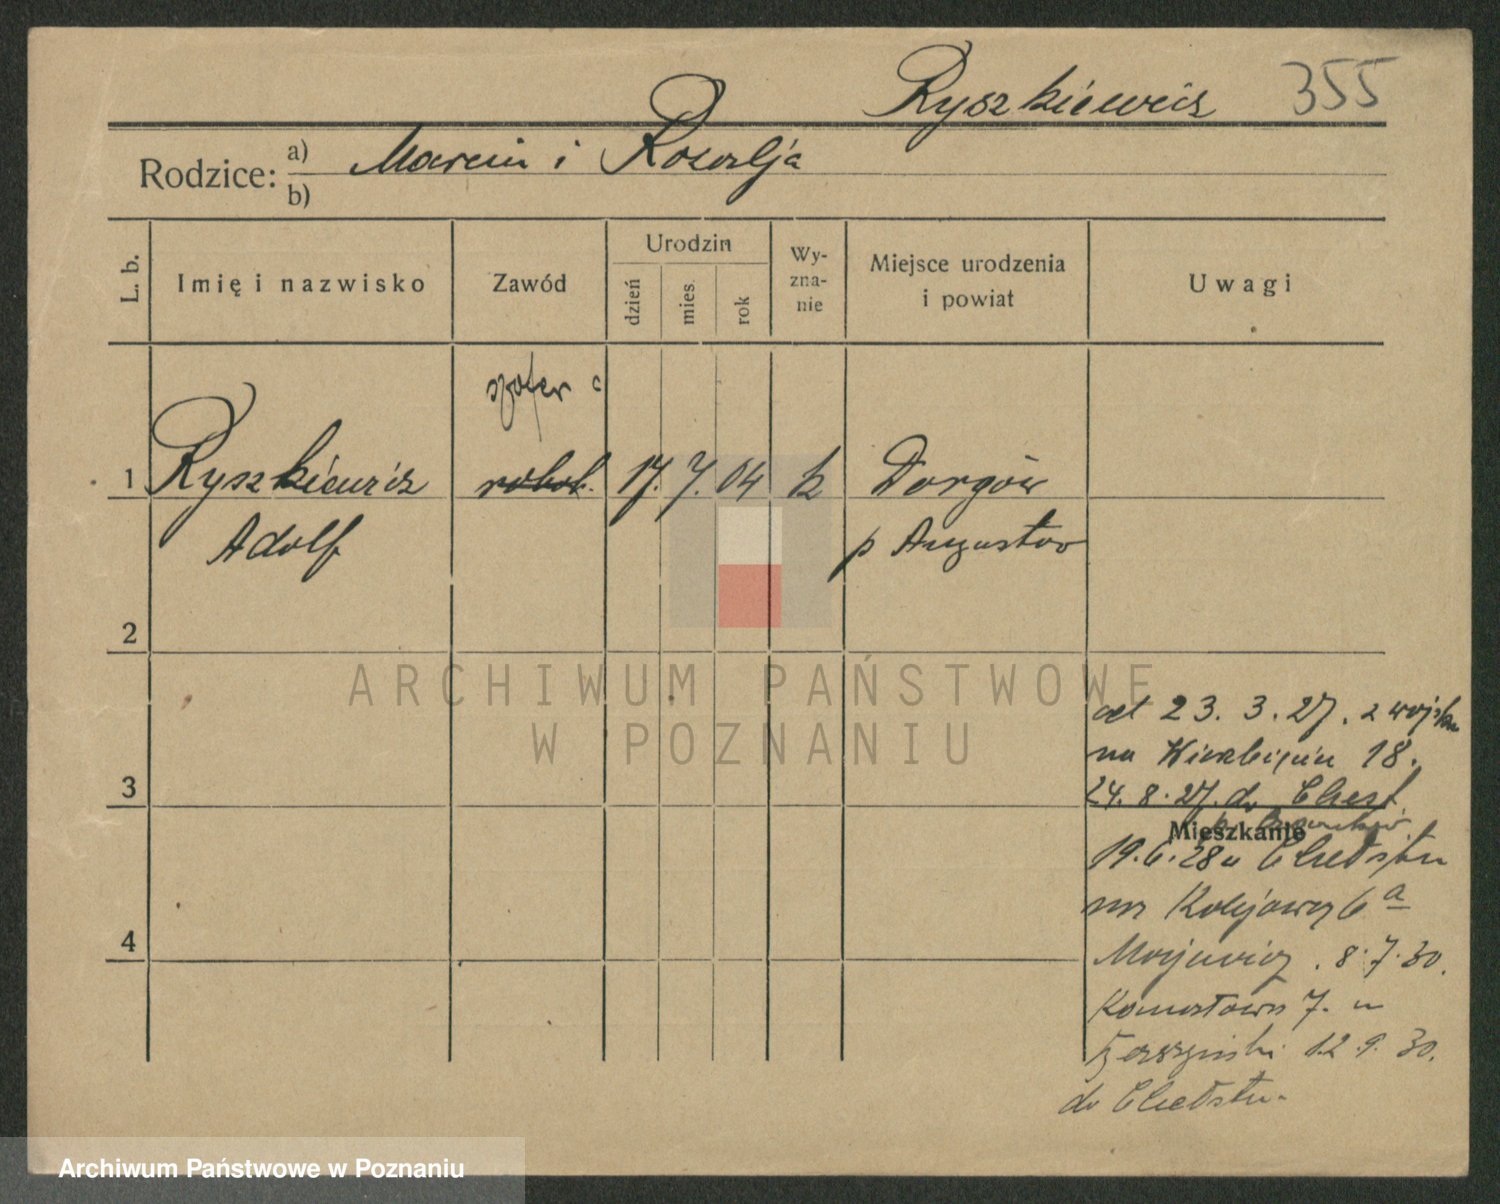 Ryszkiewicz 355
Rodzice: a) Marcin i Rozalja
b)
L. b.
Imię i nazwisko
Zawód
Urodzin
dzień
mies.
rok
Wy-
zna-
nie
Miejsce urodzenia
i powiat
Uwagi
szofer
1 Ryszkiewicz robot. 17. 7. 04 k Dorgów
Adolf p Augustow
2
ARCHIWUM PAŃSTWOWE
W POZNANIU
od 23. 3. 27. z wojska
na 18.
3 24. 8. 27. do Chest.
Mieszkanie
19. 6. 28 u Chełstu
Kolejowa 6 a
4
8. 7. 30.
7. u
12. 9. 30.
do Chełstu.
Archiwum Państwowe w Poznaniu